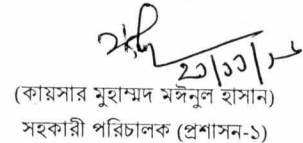 ২০/১১/১৬
(কায়সার মুহাম্মদ মঈনুল হাসান)
সহকারী পরিচালক (প্রশাসন-১)